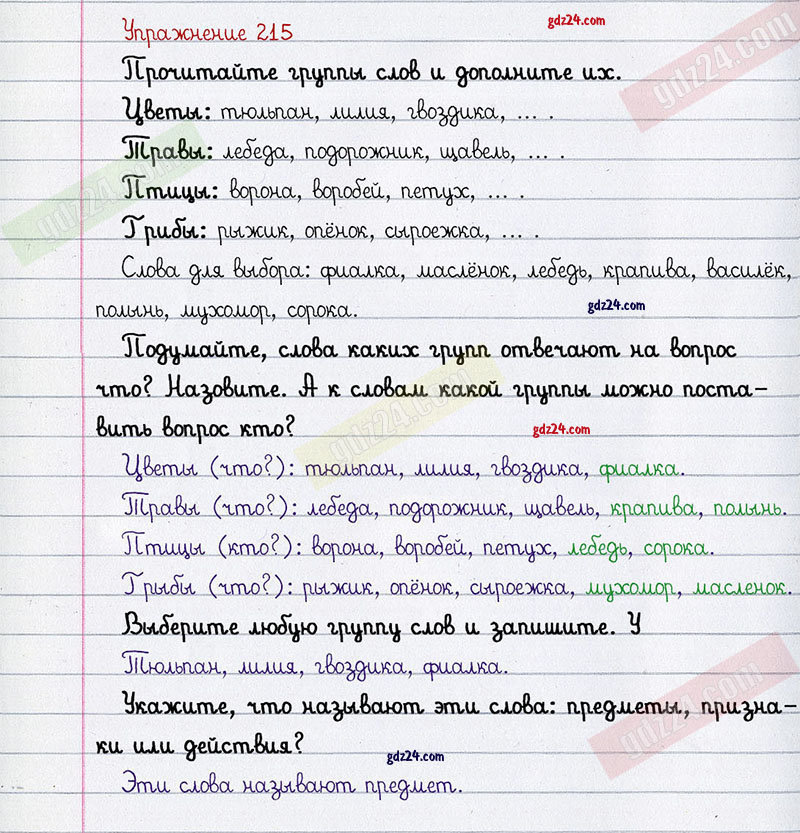 Упражнение 215 gdz24.com
Прочитайте группы слов и дополните их.
Цветы: тюльпан, лилия, гвоздика, ... .
Травы: лебеда, подорожник, щавель, ... .
Птицы: ворона, воробей, петух, ... .
Грибы: рыжик, опёнок, сыроежка, ... .
Слова для выбора: фиалка, маслёнок, лебедь, крапива, василёк,
полынь, мухомор, сорока. gdz24.com
Подумайте, слова каких групп отвечают на вопрос
что? Назовите. А к словам какой группы можно поста-
вить вопрос кто? gdz24.com
Цветы (что?): тюльпан, лилия, гвоздика, фиалка.
Травы (что?): лебеда, подорожник, щавель, крапива, полынь.
Птицы (кто?): ворона, воробей, петух, лебедь, сорока.
Грыбы (что?): рыжик, опёнок, сыроежка, мухомор, масленок.
Выберите любую группу слов и запишите. У
Тюльпан, лилия, гвоздика, фиалка.
Укажите, что называют эти слова: предметы, призна-
ки или действия?
gdz24.com
Эти слова называют предмет.
gdz24.com
gdz24.com
gdz24.com
gdz24.com